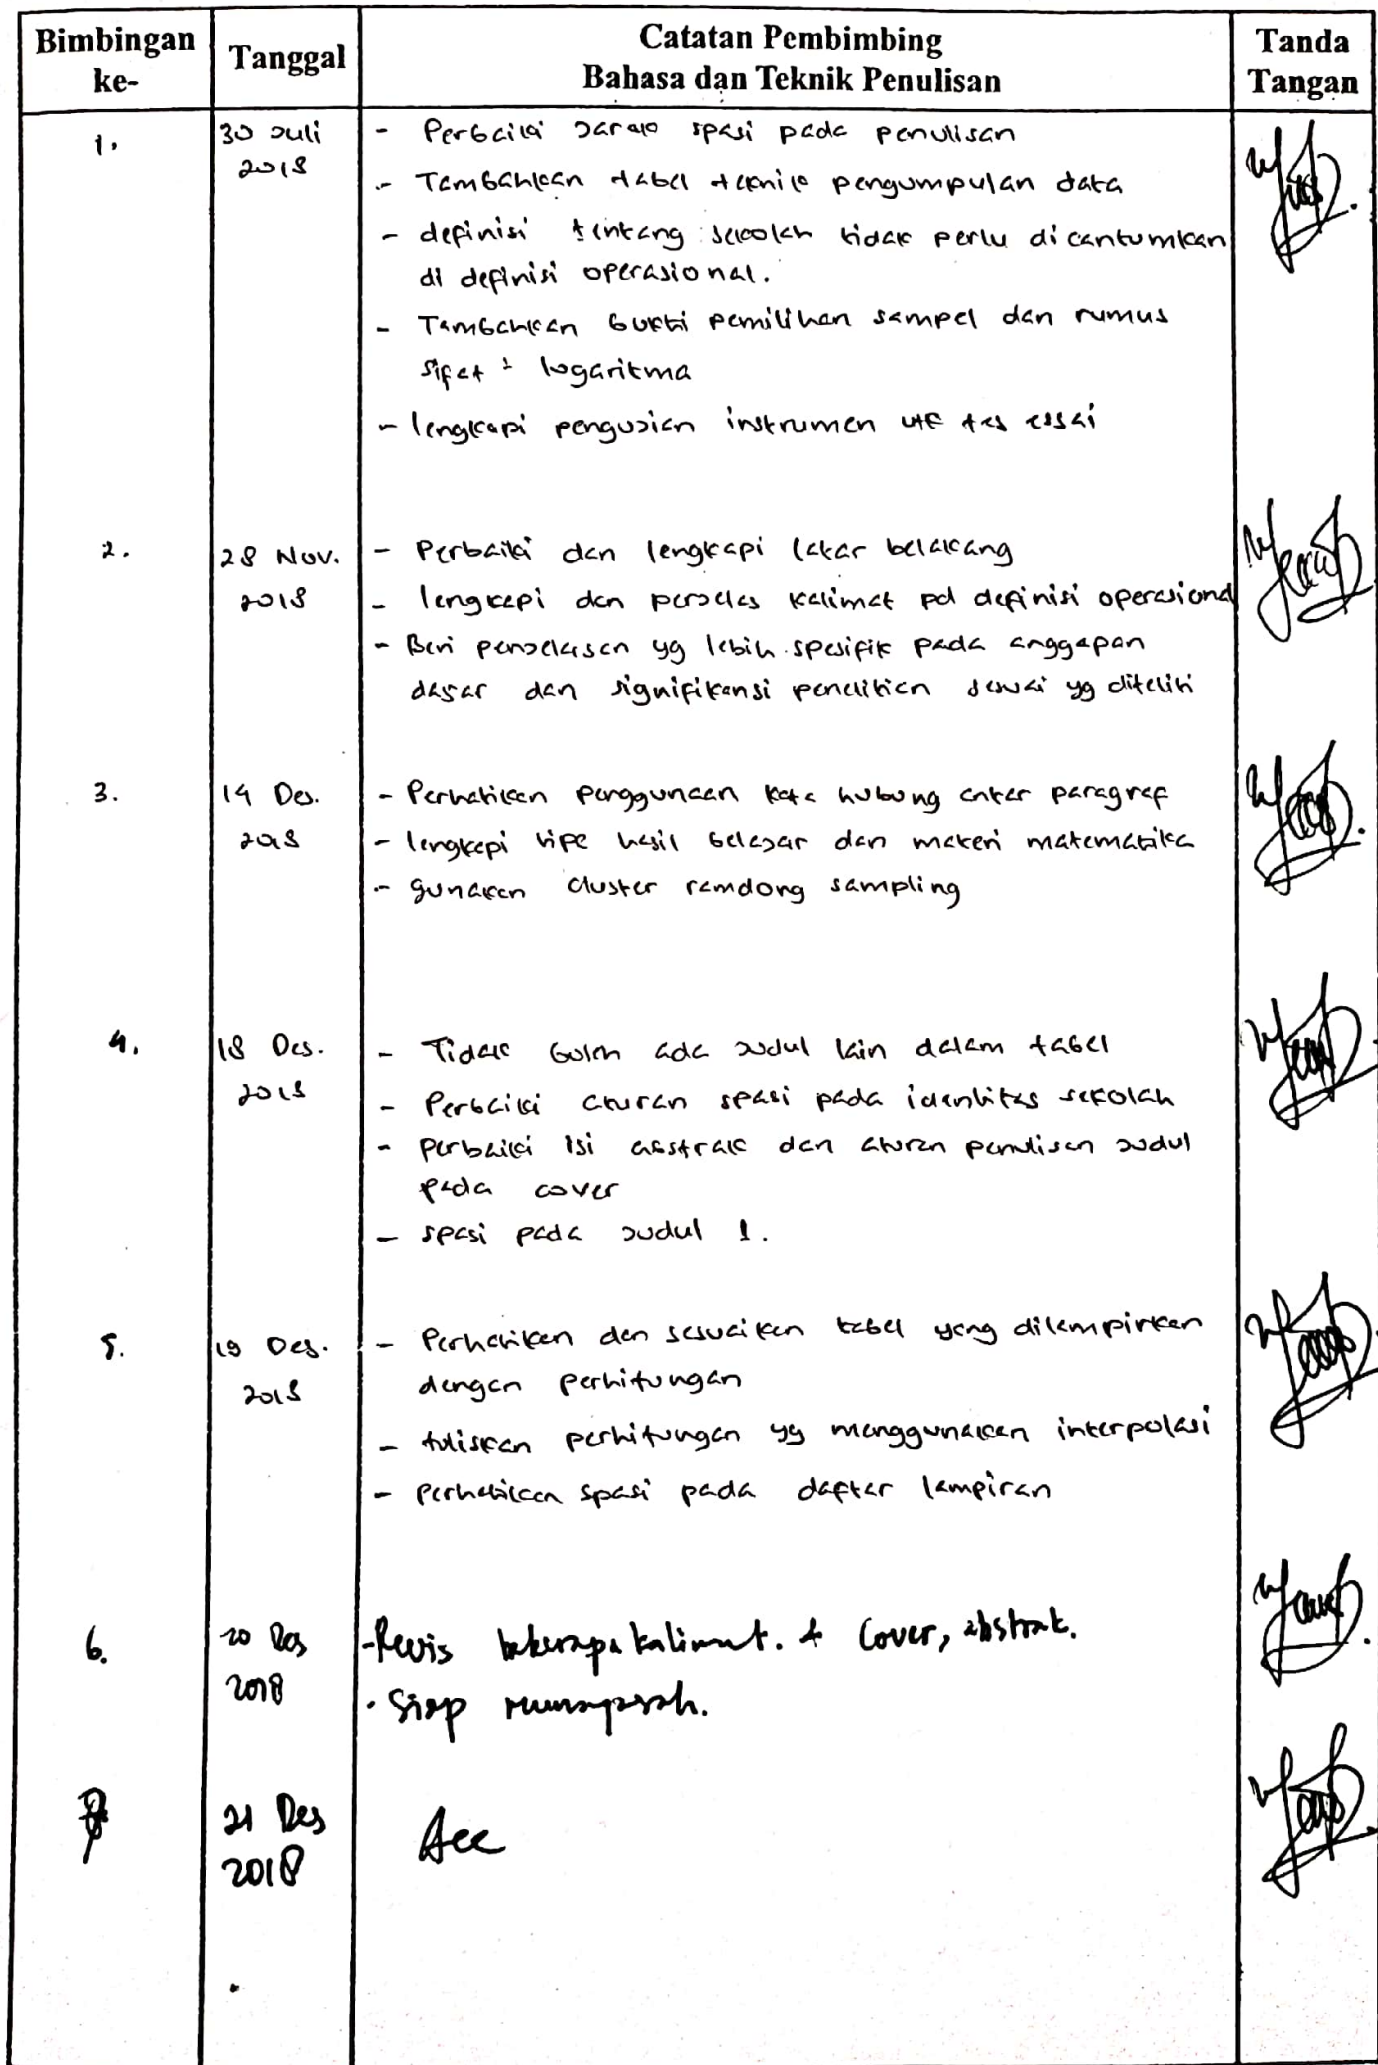 Bimbingan ke-
Tanggal
Catatan Pembimbing
Bahasa dan Teknik Penulisan
Tanda Tangan
1.
30 Juli
2018
- Perbaiki Jarak spasi pada penulisan
- Tambahkan tabel teknik pengumpulan data
- definisi tentang sekolah tidak perlu dicantumkan
di definisi operasional.
- Tambahkan bukti pemilihan sampel dan rumus
sifat ² logaritma
- lengkapi pengujian instrumen utk tes essai
2.
28 Nov.
2018
- Perbaiki dan lengkapi latar belakang
- lengkapi dan perjelas kalimat pd definisi operasional
- Beri penjelasan yg lebih spesifik pada anggapan
dasar dan signifikansi penelitian sesuai yg diteliti
3.
14 Des.
2018
- Perhatikan penggunaan kata hubung antar paragraf
- lengkapi tipe hasil belajar dan materi matematika
- gunakan cluster ramdong sampling
4.
18 Des.
2018
- Tidak boleh ada judul lain dalam tabel
- Perbaiki aturan spasi pada identitas sekolah
- perbaiki isi abstrak dan aturan penulisan judul
pada cover
- spasi pada judul 1.
5.
19 Des.
2018
- Perhatikan dan sesuaikan tabel yang dilampirkan
dengan perhitungan
- tuliskan perhitungan yg menggunakan interpolasi
- perhatikan spasi pada daftar lampiran
6.
20 Des
2018
- Revis beberapa kalimat. & Cover, abstrak.
- Siap munaqasah.
21 Des
2018
Acc